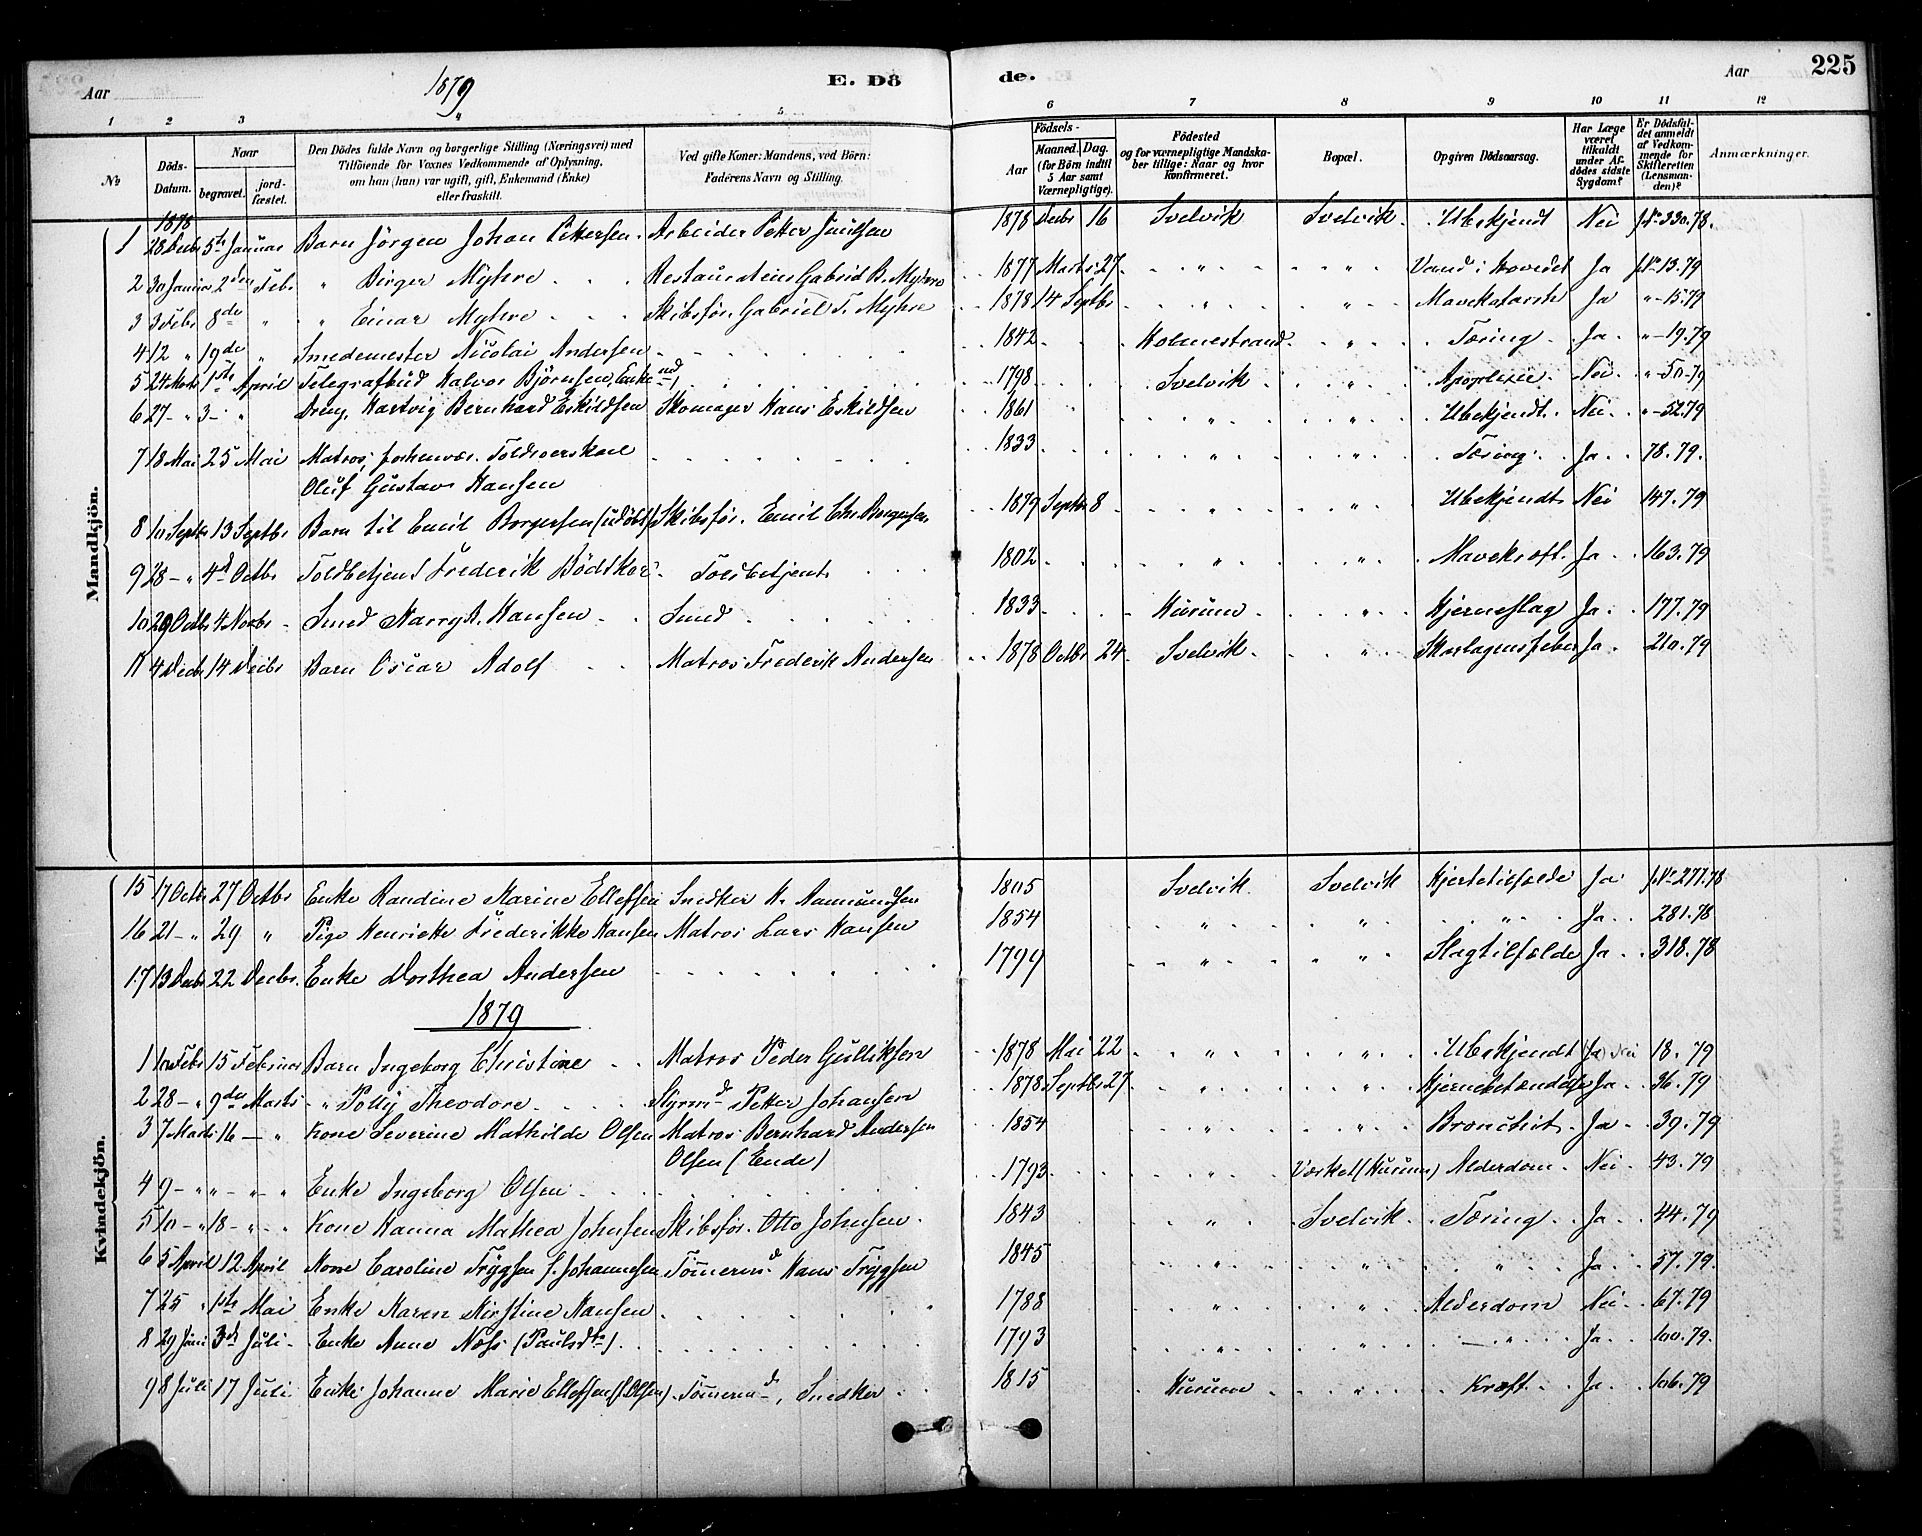 Aar 1879 E. Dö de. Aar 225
1 2 3 4 5 6 7 8 9 10 11 12
No
Döds-Datum.
Naar
begravet. jordfæstet.
Den Dödes fulde Navn og borgerlige Stilling (Næringsvei) med
Tilföiende for Voxnes Vedkommende af Oplysning,
om han (hun) var ugift, gift, Enkemand (Enke)
eller fraskilt.
Ved gifte Koner: Mandens, ved Börn:
Faderens Navn og Stilling.
Födsels-
Aar Maaned. Dag.
(for Börn indtil
5 Aar samt
Værnepligtige).
Födested
og for værnepligtige Mandskaber tillige: Naar og hvor
konfirmeret.
Bopæl.
Opgiven Dödsaarsag.
Har Læge været tilkaldt under Afdödes sidste Sygdom?
Er Dödsfaldet anmeldt af Vedkommende for Skifteretten (Lensmanden)?
Anmærkninger.
Mandkjön.
1878
1 28 Decbr 5te Januar Barn Jörgen Johan Pettersen. Arbeider Petter 1878 Decbr 16 Svelvik Svelvik. Ubekjendt Nei No 330.78.
2 30 Januar 2den Febr " Birger Myhre Gabriel B. Myhre 1877 Marts 27 " " Vand i Hovedet Ja No 13.79
3 3 Febr 8de " " Einar Myhre Skibsför. Gabriel T. Myhre 1878 14 Septbr " " Mavekatarrh Ja "-15.79
4 12 " 19de " Smedemester Nicolai Andersen 1842 Holmestrand " Tæring Ja "-19.79
5 24 Marts 1ste April Telegrafbud Halvor Björnsen, Enkemd 1798 Svelvik " Apoplexie. Nei "-50-79
6 27-" 3-" Dreng Hartvig Bernhard Eskildsen Skomager Hans Eskildsen 1861 " " Ubekjendt. Nei. "-52.79
7 18 Mai 25 Mai Matros, forhenvær. Toldroerskarl 1833 " " Tæring. Ja. 78.79.
Oluf Gustav Hansen
8 10 Septbr 13 Septbr Barn til Emil Borgersen (udöbt) Skibsför. Emil Chr. Borgersen 1879 Septbr 8 " " Ubekjendt Nei 147.79
9 28-" 4d Octbr Toldbetjent Frederik Bödtker Toldbetjent 1802 " " Mavekræft. Ja. 163.79
10 29 Octbr 4 Novbr Smed Harry R. Hansen Smed 1833 Hurum " Hjerneslag Ja. 177.79
11 4 Decbr 14 Decbr Barn Oscar Adolf Matros Frederik Andersen 1878 Octbr 24 Svelvik " Skarlagensfeber Ja. 210.79
Kvindekjön.
15 17 Octbr 27 Octbr Enke Randine Marine Ellefsen Snedker H. Aamundsen 1805 Svelvik Svelvik Hjertetilfælde Ja No 277.78
16 21-" 29 " Pige Henriette Frederikke Hansen Matros Lars Hansen 1854 " " " Ja. 281.78
17 13 Decbr 22 Decbr. Enke Dorthea Andersen 1799 " " Slagtilfælde Ja 318.78
1879
1 10 Febr 15 Februar Barn Ingeborg Christine Matros Peder Gulliksen 1878 Mai 22 " " Ubekjendt (Ja) Nei 18.79
2 28-" 9de Marts " Polly Theodore. Styrmd Petter Johansen 1878 Septbr 27 " " Hjernebetændelse Ja. 36.79
3 7 Marts 16-" Kone Severine Mathilde Olsen Matros Bernhard Andersen 1854 " " Bronchit. Ja 39.79
Olsen (Ende)
4 9-" "-" Enke Ingeborg Olsen 1793 " (Hurum) Alderdom. Nei. 43.79
5 10-" 18-" Kone Hanna Mathea Johnsen Skibsför. Otto Johnsen. 1843 " Svelvik. Tæring. Ja. 44.79
6 5 April 12 April Kone Caroline Trygsen f. Johannesen Tömermd Hans Trygsen 1845 " " " Ja. 57.79.
7 25 " 1ste Mai Enke Karen Kirstine Hansen 1788 " " Alderdom Nei 67.79
8 29 Juni 3d Juli. Enke Anne Næss (Paulsdtr) 1793 " " " Ja. 100.79.
9 8 Juli 17 Juli Enke Johanne Marie Ellefsen (f. Olsen). Tömermd, Snedker 1815 Hurum " Kræft. Ja. 106.79